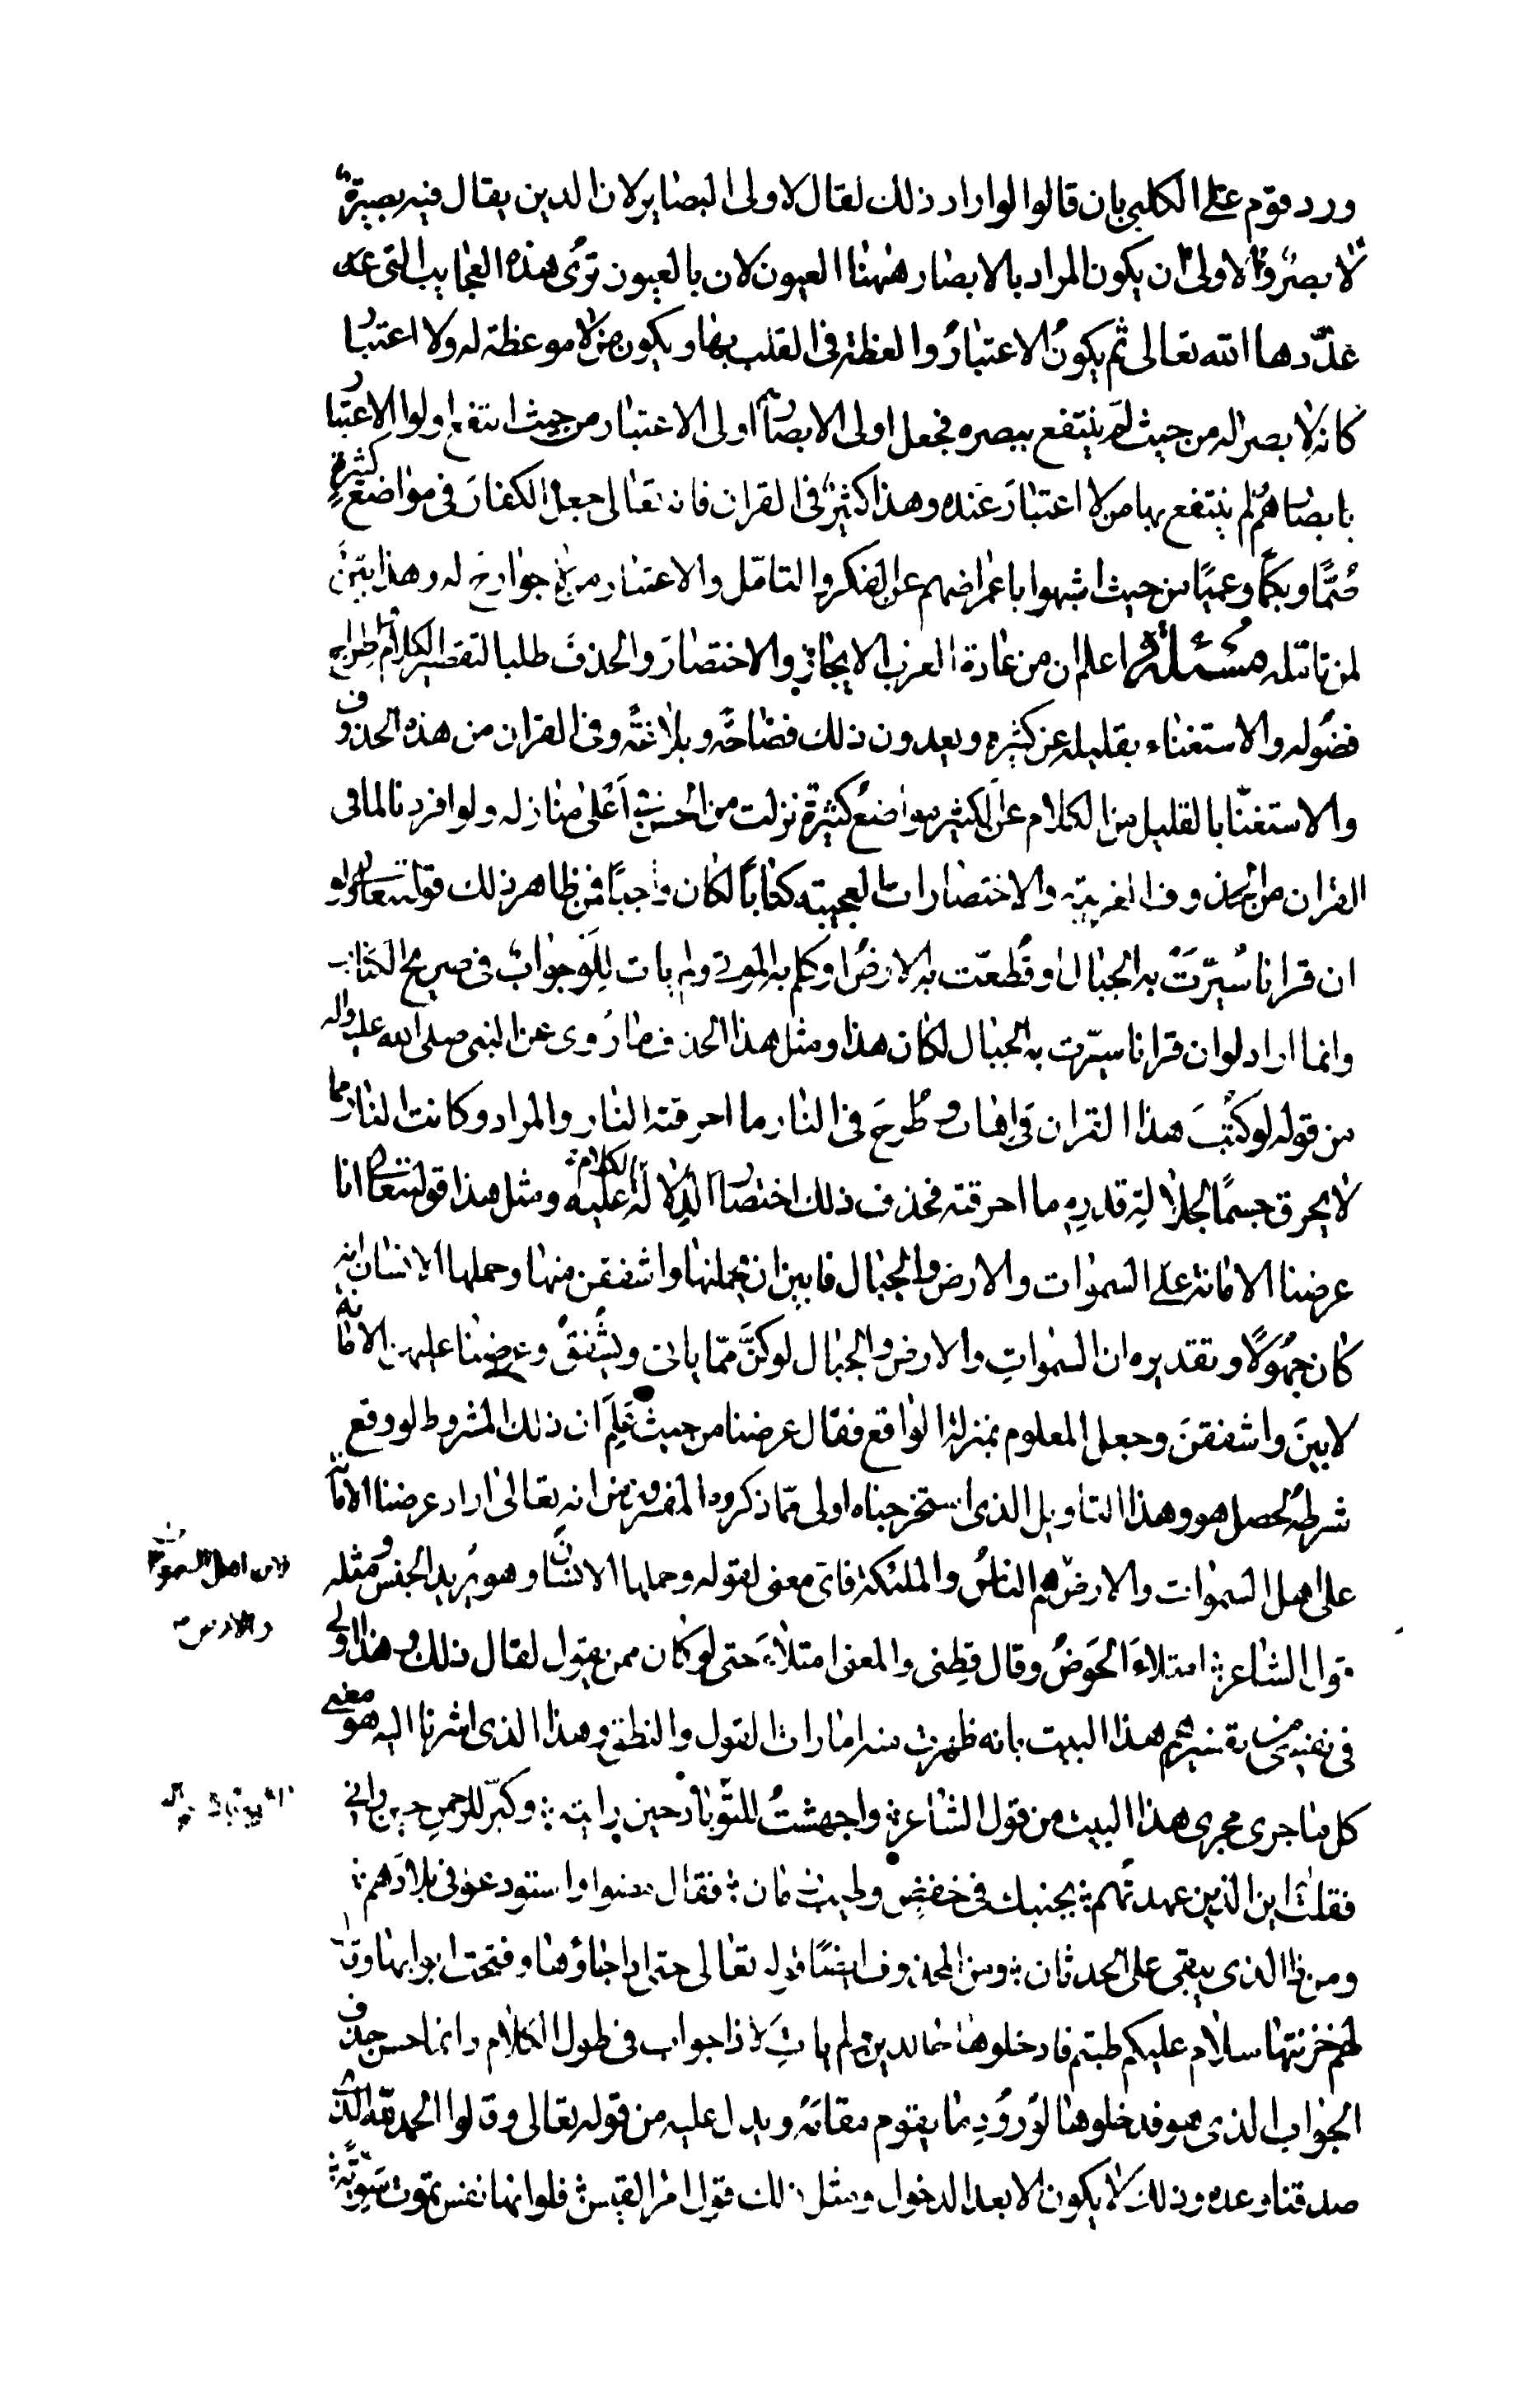 ورد قوم على الكلبي بان قالوا لو اراد ذلك لقال لاولى البصاير لان الدين يقال فيه بصيرةٌ
لا بصرٌ والاولى ان يكون المراد بالابصار ههنا العيون لان بالعيون تُرى هذه العجايب التى عد
عدّدها الله تعالى ثم يكونُ الاعتبارُ والعظة فى القلب بها ويكون من لا موعظة له ولا اعتبار
كانه لا بصر له من حيث لم ينتفع ببصره فجعل اولى الابصار اولى الاعتبار من حيث انتفع اولوا الاعتبار
بابصارهم لم ينتفع بها من لا اعتبارَ عنده وهذا كثيرٌ فى القران فانه تعالى جعل الكفارَ فى مواضع كثيرةٍ
صُمًّا وبكمًا وعميًا من حيث اشبهوا باعراضهم عن الفكر والتامّل والاعتبار من لا جوارح له وهذا بيّنٌ
لمن تامّله مسئلة اعلم ان من عادة العرب الايجازَ والاختصارَ والحذفَ طلبا لتقصير الكلام واطراح
فضُوله والاستغناء بقليله عن كثيره ويعدون ذلك فصاحةً وبلاغةً وفى القران من هذه الحذوف
والاستغناء بالقليل من الكلام عن الكثير مواضعُ كثيرة نزلت من الحسن فى اَعْلى منازله ولو افردنا لما فى
القران من الحذوف الغريبة والاختصارات العجيبة كتاباً لكان واجباً فمن ظاهر ذلك قوله تعالى ولو
ان قرانا سُيّرَتْ به الجبال او قُطعّت به الارضُ او كلم به الموتى ولم يات لِلَوْ جوابٌ فى صريح الكتاب
وانما اراد لو ان قرانا سيّرت به الجبال لكان هذا ومثل هذا الحذف ما رُوى عن النبى صلى الله عليه واله
من قوله لو كُتِبَ هذا القران فى اِهاب وطُرِحَ فى النار ما احرقته النار والمراد وكانت النار مما
لا يحرق جسمًا لجلالةِ قدرِه ما احرقته فحذف ذلك اختصارا لدلالة الكلام عليه ومثل هذا قوله تعالى انا
عرضنا الامانة على السموات والارض والجبال فابين ان يحملنها واشفقن منها وحملها الانسان انه
كان جهُوَلًا وتقديره ان السمواتِ والارض والجبال لو كنَّ ممّا يابى ويشفقُ وعرضنا عليهن الامانة
لابينَ واشفقنَ وجعل المعلوم بمنزلة الواقع فقال عرضنا من حيث عَلِمَ ان ذلك المشروط لو وقع
شرطُه لحصل هو وهذا التاويل الذى استخرجناه اولى مّما ذكروه المفسرون من انه تعالى اراد عرضنا الامانة
على اهل السموات والارض هم الناسُ والملئكة فاى معنى لقوله وحملها الانسان وهو يُريد الجنس ومثله
لان اهل السموات
والارض
قول الشاعر امتلاءَ الحَوضُ وقال قطِنى والمعنى امتلاءَ حتى لو كان ممن يقول لقال ذلك وهذا اولى
فى نفسى من تفسيرهم هذا البيت بانه ظهرت منه امارات القول والنطق وهذا الذى اشرنا اليه هو معنى
كل ما جرى مجرى هذا البيت من قول الشاعر واجهشتُ للتّوباذ حين رايته وكبّر للرحمنِ حين رانى
فقلت اين الذين عهدتُهم بجنبك فى خفضٍ وطيب زمان فقال مضوا واستودعونى بلادَهم
ومن ذا الذى يبقى على الحدثان ومن المحذوف ايضًا قوله تعالى حتى اذا جاؤها وفتحت ابوابها وقال
لهم خزنتها سلام عليكم طبتم فادخلوها خالدين ولم يات لاذا جواب فى طول الكلام وانما حسن حذف
الجواب الذى هو فدخلوها لوُرودِ ما يقوم مقامَهُ ويدل عليه من قوله تعالى وقالوا الحمد لله الذى
صدقنا وعده وذلك لا يكون الا بعد الدخول ومثل ذلك قول امرا القيس فلو انها نفس تموت سَوِيَّة